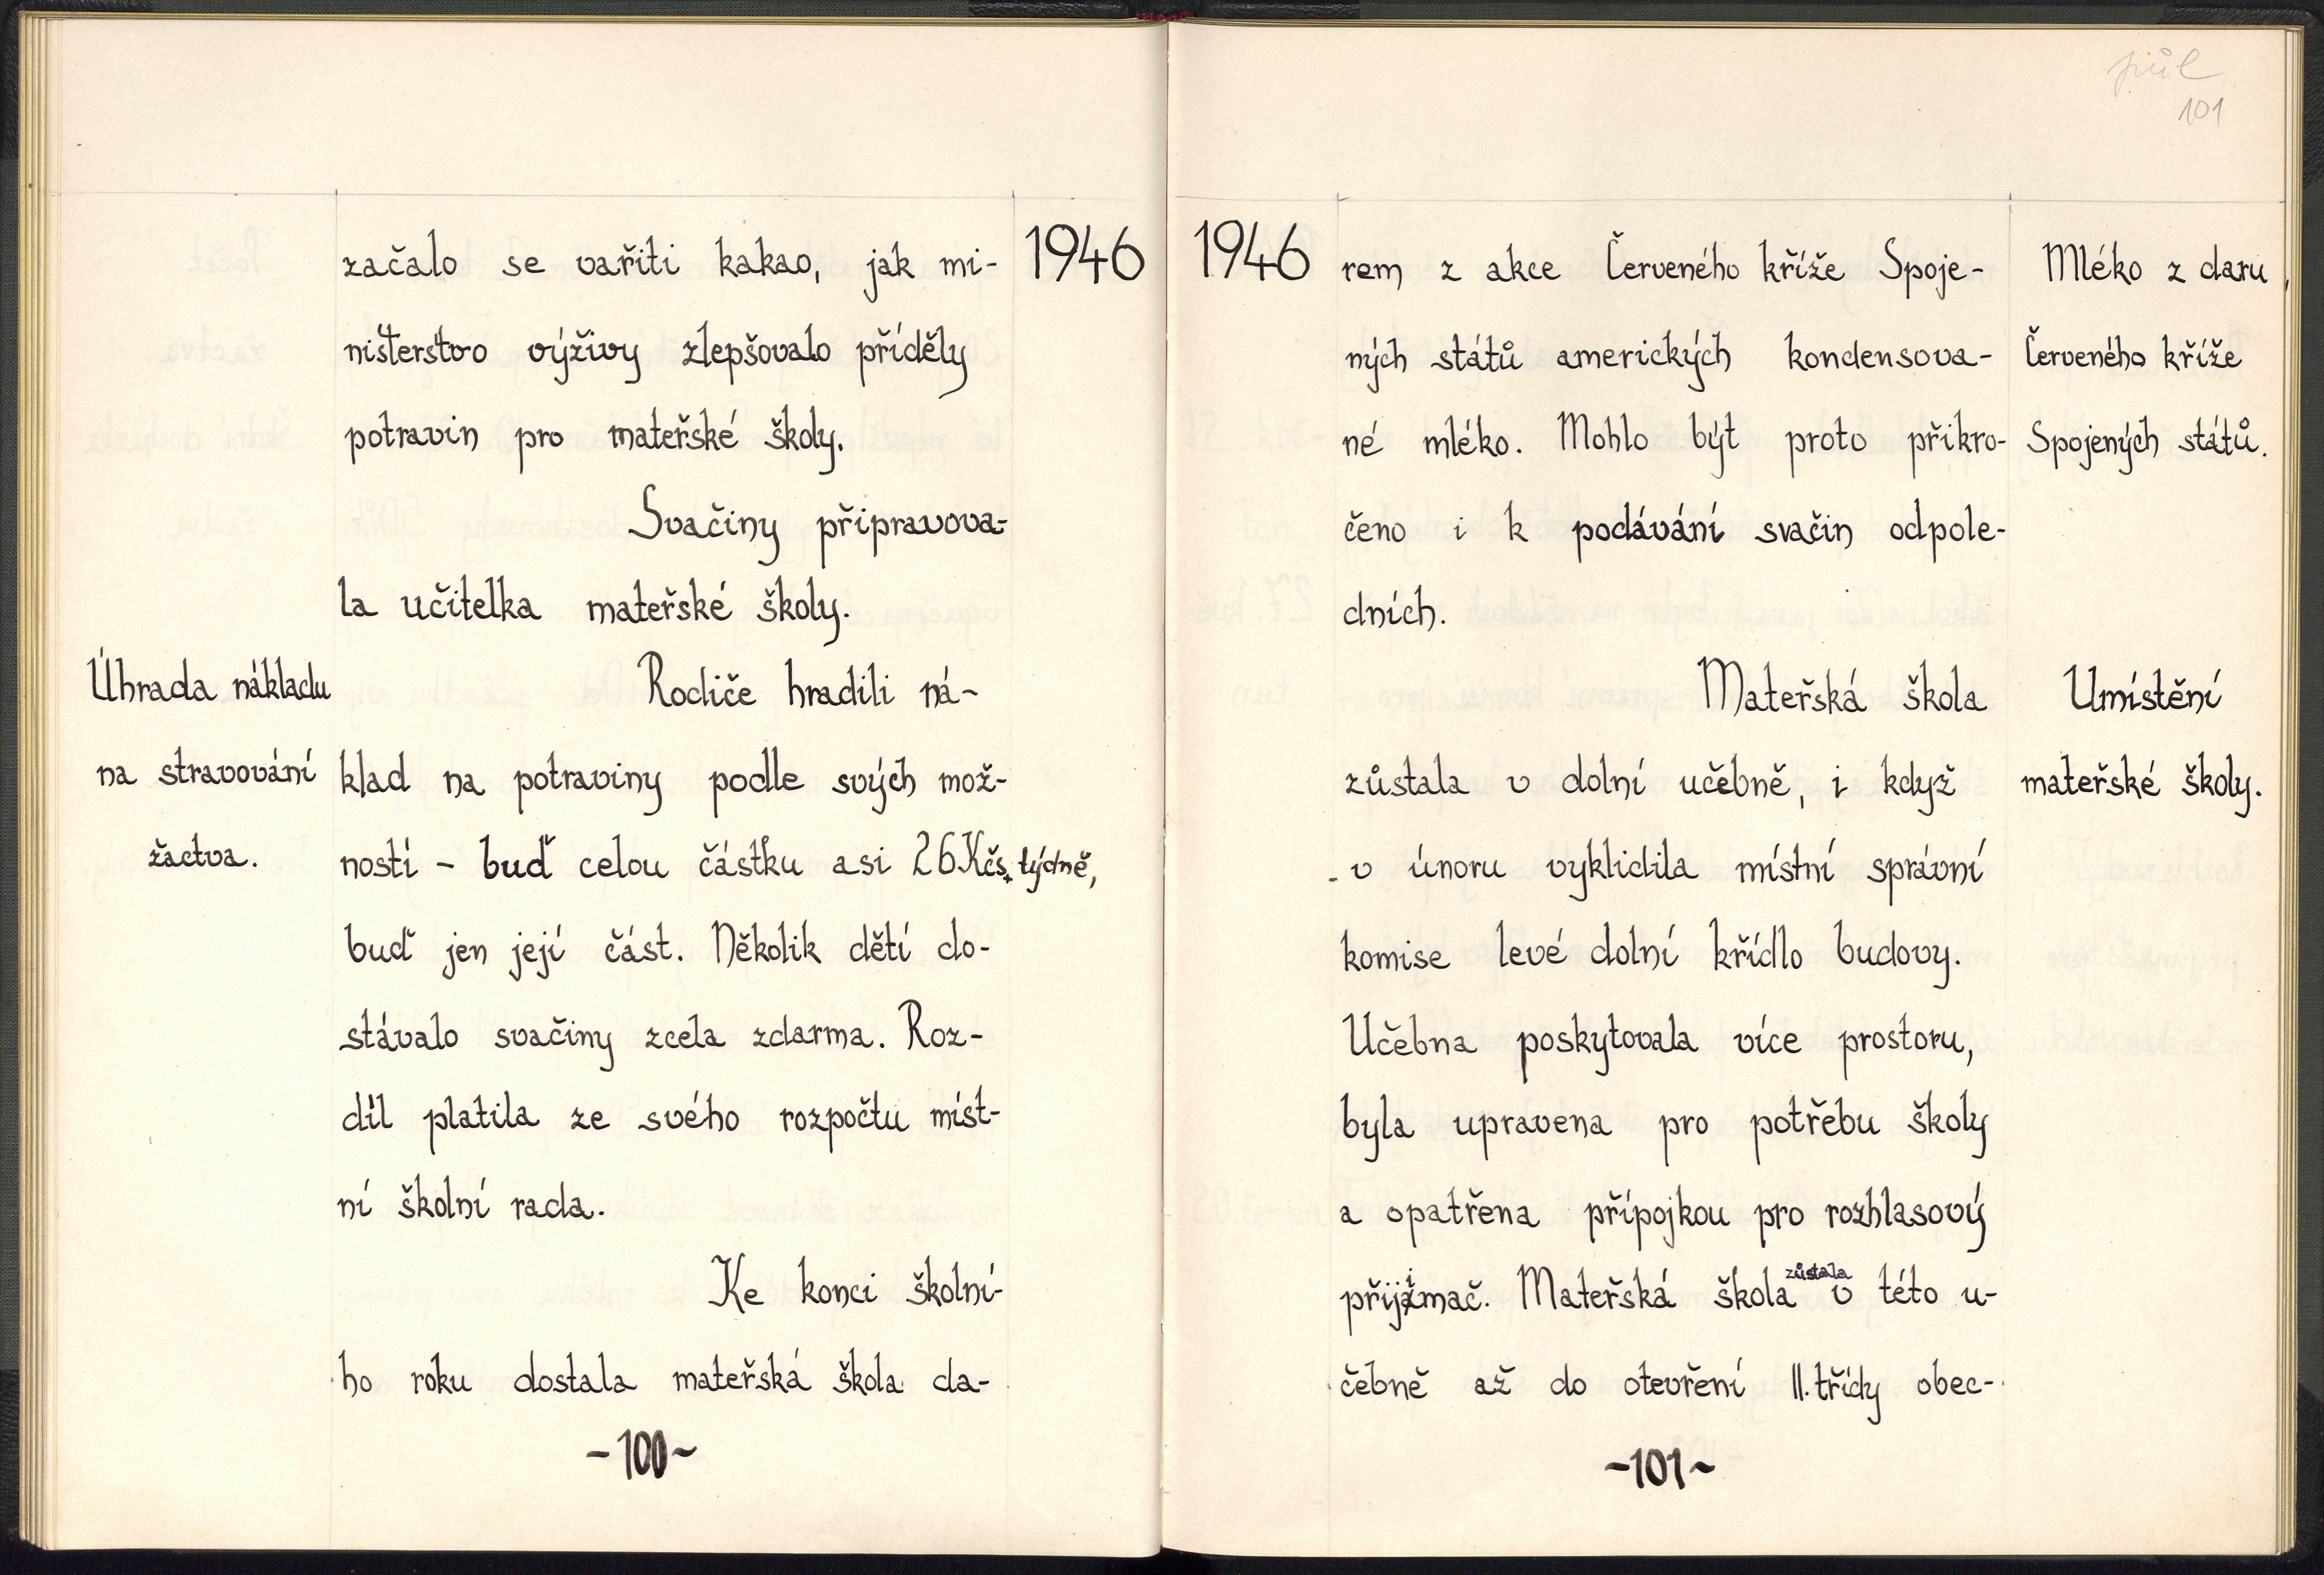 1946
začalo se vařiti kakao, jak mi-
nisterstvo výživy zlepšovalo příděly
potravin pro mateřské školy.
Svačiny připravova-
la učitelka mateřské školy.
Úhrada nákladu
na stravování
žactva.
Rodiče hradili ná-
klad na potraviny podle svých mož-
ností – buď celou částku asi 26 Kčs týdně,
buď jen její část. Několik dětí do-
stávalo svačiny zcela zdarma. Roz-
díl platila ze svého rozpočtu míst-
ní školní rada.
Ke konci školní-
ho roku dostala mateřská škola da-
-100-
půl
101
1946
rem z akce Červeného kříže Spoje-
ných států amerických kondensova-
né mléko. Mohlo být proto přikro-
čeno i k podávání svačin odpole-
dních.
Mléko z daru
Červeného kříže
Spojených států.
Mateřská škola
zůstala v dolní učebně, i když
v únoru vyklidila místní správní
komise levé dolní křídlo budovy.
Učebna poskytovala více prostoru,
byla upravena pro potřebu školy
a opatřena přípojkou pro rozhlasový
přijímač. Mateřská škola zůstala v této u-
čebně až do otevření II. třídy obec-
Umístění
mateřské školy.
-101-